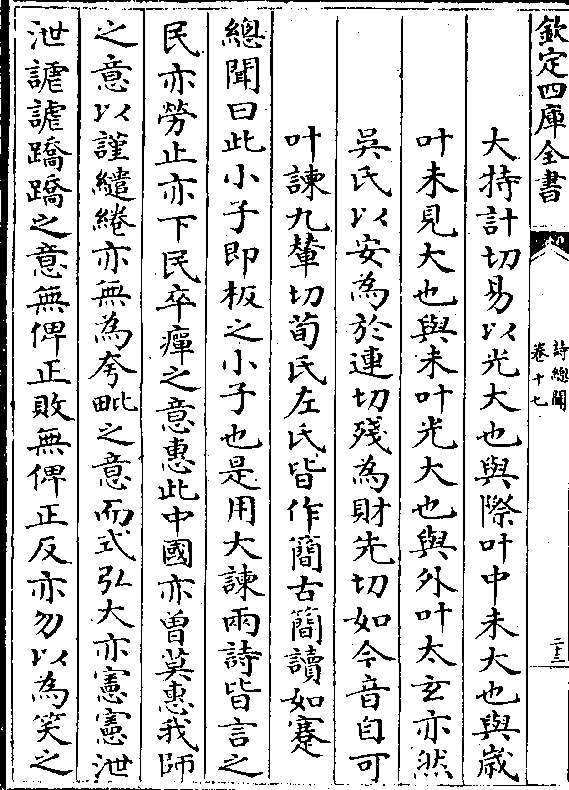 欽定四庫全書
詩總聞
卷十七
二十三
大特計切易以光大也與際叶中未大也與歳
叶未見大也與未叶光大也與外叶太玄亦然
吳氏以安為於連切殘為財先切如今音自可
叶諫九輦切荀氏左氏皆作簡古簡讀如蹇
總聞曰此小子即板之小子也是用大諫兩詩皆言之
民亦勞止亦下民卒癉之意惠此中國亦曾莫惠我師
之意以謹繾綣亦無為夸毗之意而式弘大亦憲憲泄
泄謔謔蹻蹻之意無俾正敗無俾正反亦勿以為笑之